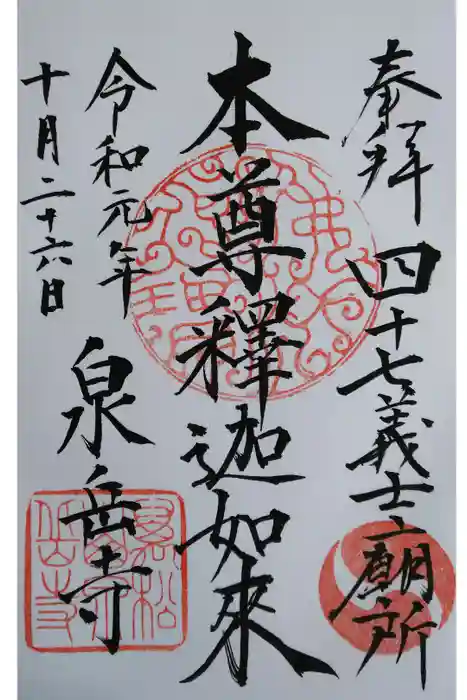 奉拝 四十七義士之廟所
本尊釋迦如來
令和元年
十月二十六日
泉岳寺